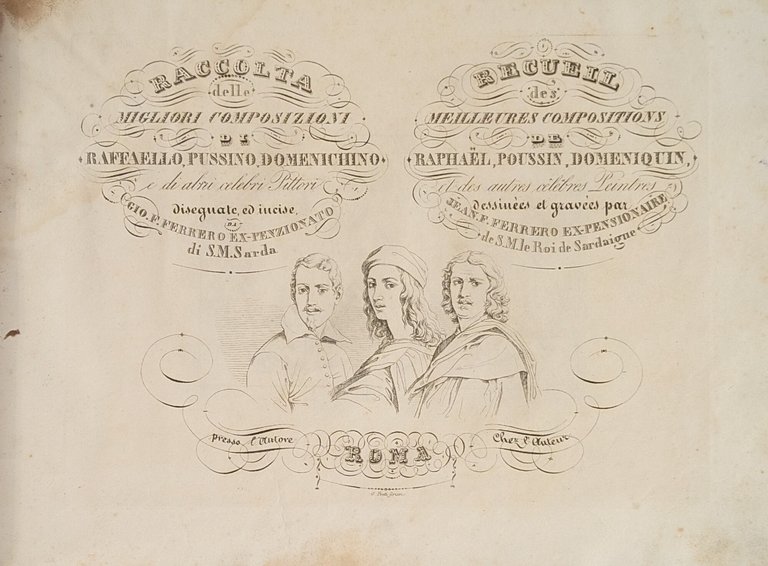 RACCOLTA
delle
MIGLIORI COMPOSIZIONI
DI
RAFFAELLO, PUSSINO, DOMENICHINO
e di altri celebri Pittori
disegnate, ed incise
DA
GIO. F. FERRERO EX-PENZIONATO
di S.M. Sarda
RECUEIL
des
MEILLEURES COMPOSITIONS
DE
RAPHAËL, POUSSIN, DOMENIQUIN,
et des autres célèbres Peintres
dessinèes et gravées par
JEAN. F. FERRERO EX-PENSIONAIRE
de S.M. le Roi de Sardaigne
presso l'Autore
ROMA
Chez l'Auteur